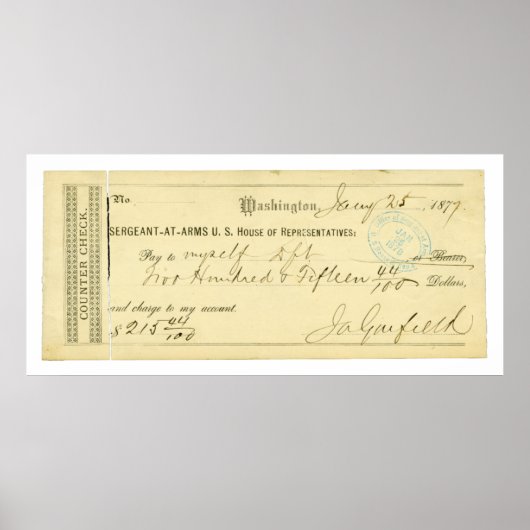 COUNTER CHECK.
No.
Washington, Jany 25, 1877.
SERGEANT-AT-ARMS U. S. HOUSE OF REPRESENTATIVES:
Pay to myself Dft or Bearer,
Two Hundred & Fifteen 44/100 Dollars,
and charge to my account.
$ 215 44/100
Ja Garfield
JAN